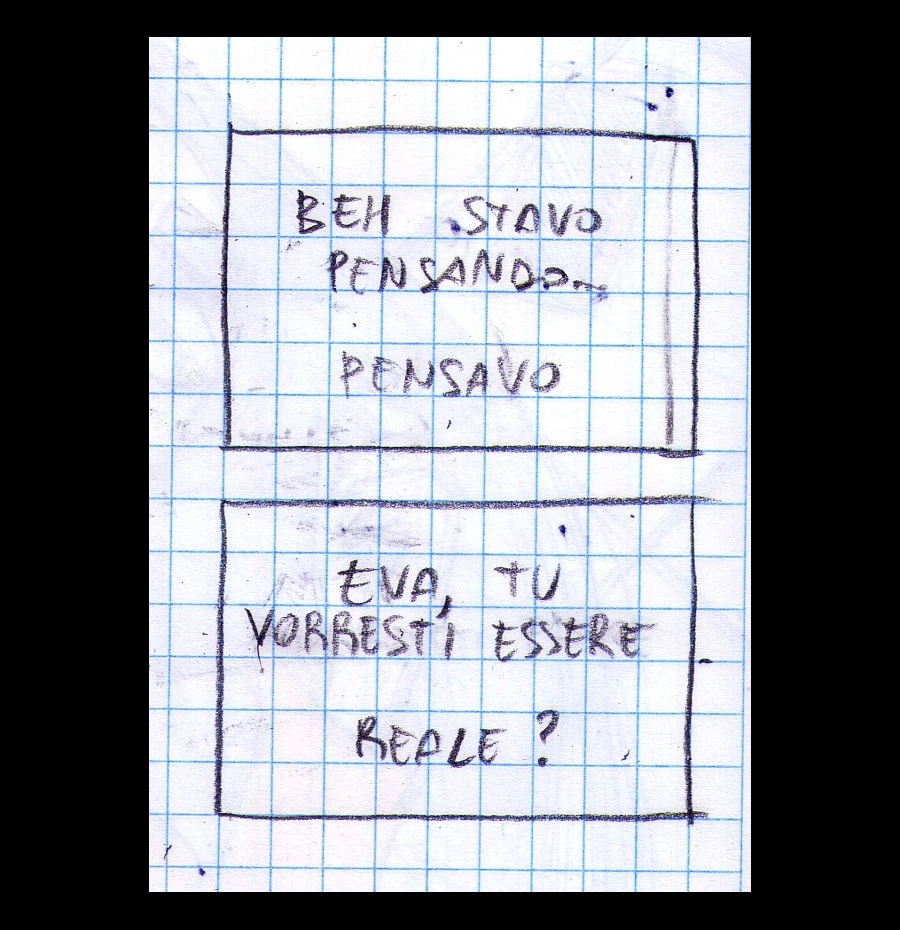 BEH STAVO
PENSANDO...
PENSAVO
EVA, TU
VORRESTI ESSERE
REALE?